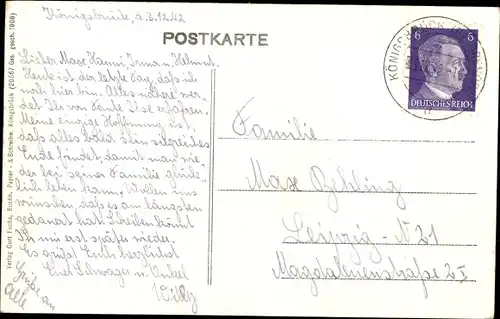 Königsbrück, d. 3.12.42
POSTKARTE
Lieber Max, Hanni, Irma u. Helmut.
Heute ist der letzte Tag, daß ich
noch hier bin. Alles nähere wer-
det Ihr von Tante Else erfahren.
Meine einzige Hoffnung ist,
daß alles bald sein siegreiches
Ende findet, damit man wie-
der bei seiner Familie glück-
lich leben kann. Wollen uns
wünschen, daß es am längsten
gedauert hat.
Ihr mir erst später wieder.
Es grüßt Euch herzlichst
Euer Schwager u. Onkel
Willy
Grüße an
Alle
Familie
Max Behling
Leipzig - N 21
Magdalenenstraße 2 I
KÖNIGSBRÜCK
6 6
DEUTSCHES REICH
Verlag Curt Fuchs, Buchh. Papier- & Schreibw. Königsbrück (20567 Ges. gesch. 1908)